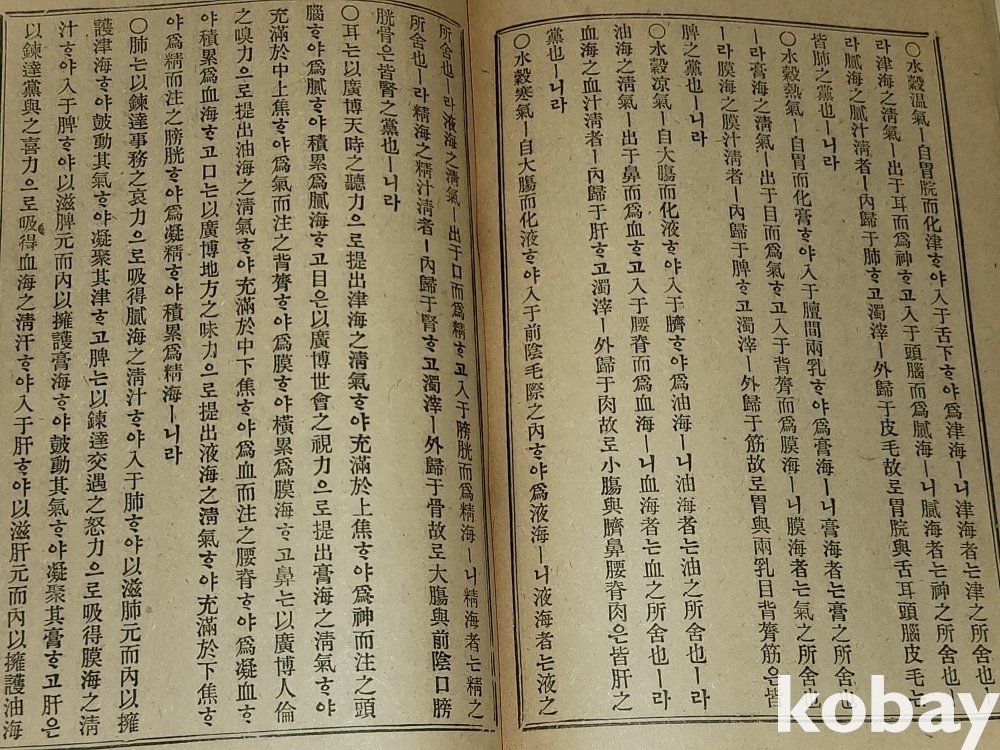 〇水穀温氣ㅣ自胃脘而化津ᄒᆞ야入于舌下ᄒᆞ야爲津海ㅣ니津海者는津之所舍也ㅣ
라津海之淸氣ㅣ出于耳而爲神ᄒᆞ고入于頭腦而爲膩海ㅣ니膩海者는神之所舍也ㅣ
라膩海之膩汁淸者ㅣ內歸于肺ᄒᆞ고濁滓ㅣ外歸于皮毛故로胃脘與舌耳頭腦皮毛는
皆肺之黨也ㅣ니라
〇水穀熱氣ㅣ自胃而化膏ᄒᆞ야入于膻間兩乳ᄒᆞ야爲膏海ㅣ니膏海者는膏之所舍也
ㅣ라膏海之淸氣ㅣ出于目而爲氣ᄒᆞ고入于背膂而爲膜海ㅣ니膜海者는氣之所舍也
ㅣ라膜海之膜汁淸者ㅣ內歸于脾ᄒᆞ고濁滓ㅣ外歸于筋故로胃與兩乳目背膂筋은皆
脾之黨也ㅣ니라
〇水穀凉氣ㅣ自小腸而化油ᄒᆞ야入于臍ᄒᆞ야爲油海ㅣ니油海者는油之所舍也ㅣ라
油海之淸氣ㅣ出于鼻而爲血ᄒᆞ고入于腰脊而爲血海ㅣ니血海者는血之所舍也ㅣ라
血海之血汁淸者ㅣ內歸于肝ᄒᆞ고濁滓ㅣ外歸于肉故로小腸與臍鼻腰脊肉은皆肝之
黨也ㅣ니라
〇水穀寒氣ㅣ自大腸而化液ᄒᆞ야入于前陰毛際之內ᄒᆞ야爲液海ㅣ니液海者는液之
所舍也ㅣ라液海之淸氣ㅣ出于口而爲精ᄒᆞ고入于膀胱而爲精海ㅣ니精海者는精之
所舍也ㅣ라精海之精汁淸者ㅣ內歸于腎ᄒᆞ고濁滓ㅣ外歸于骨故로大腸與前陰口膀
胱骨은皆腎之黨也ㅣ니라
〇耳는以廣博天時之聽力으로提出津海之淸氣ᄒᆞ야充滿於上焦ᄒᆞ야爲神而注之頭
腦ᄒᆞ야爲膩ᄒᆞ야積累爲膩海ᄒᆞ고目은以廣博世會之視力으로提出膏海之淸氣ᄒᆞ야
充滿於中上焦ᄒᆞ야爲氣而注之背膂ᄒᆞ야爲膜ᄒᆞ야積累爲膜海ᄒᆞ고鼻는以廣博人倫
之嗅力으로提出油海之淸氣ᄒᆞ야充滿於中下焦ᄒᆞ야爲血而注之腰脊ᄒᆞ야爲凝血ᄒᆞ
야積累爲血海ᄒᆞ고口는以廣博地方之味力으로提出液海之淸氣ᄒᆞ야充滿於下焦ᄒᆞ
야爲精而注之膀胱ᄒᆞ야爲凝精ᄒᆞ야積累爲精海ㅣ니라
〇肺는以鍊達事務之哀力으로吸得膩海之淸汁ᄒᆞ야入于肺ᄒᆞ야以滋肺元而內以擁
護津海ᄒᆞ야鼓動其氣ᄒᆞ야凝聚其津ᄒᆞ고脾는以鍊達交遇之怒力으로吸得膜海之淸
汁ᄒᆞ야入于脾ᄒᆞ야以滋脾元而內以擁護膏海ᄒᆞ야鼓動其氣ᄒᆞ야凝聚其膏ᄒᆞ고肝은
以鍊達黨與之喜力으로吸得血海之淸汁ᄒᆞ야入于肝ᄒᆞ야以滋肝元而內以擁護油海
kobay